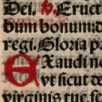 Dei. V. Eruct
bum bonum d
regi. Gloria pa
Exaudi n
vt sicut d
virginis tue f